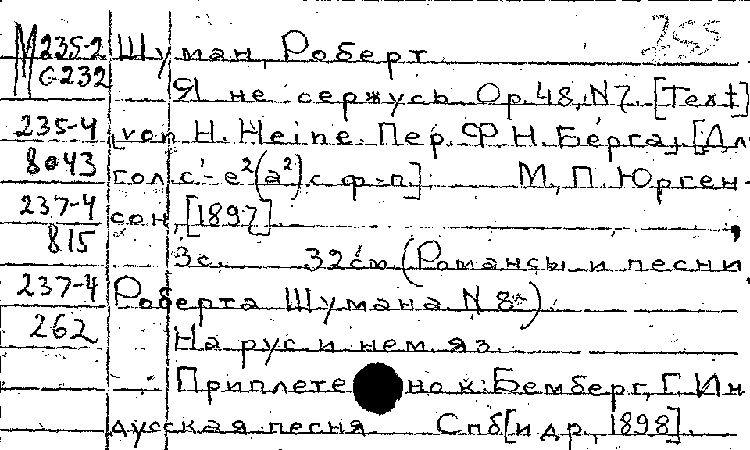 М 235-2 Шуман, Роберт 255
G232
Я не сержусь. Op. 48, N 7. [Text]
235-4 [von H. Heine. Пер. Ф. Н. Берга]. [Дл
8043 гол. c'-e²(a²) с ф-п.]. М., П. Юрген-
237-4 сон, [1897].
815 3 с. 32 см (Романсы и песни
237-4 Роберта Шумана N 8).
262 На рус. и нем. яз.
Приплетено к: Бемберг, Г. Ин
дусская песня Спб [и др., 1898].